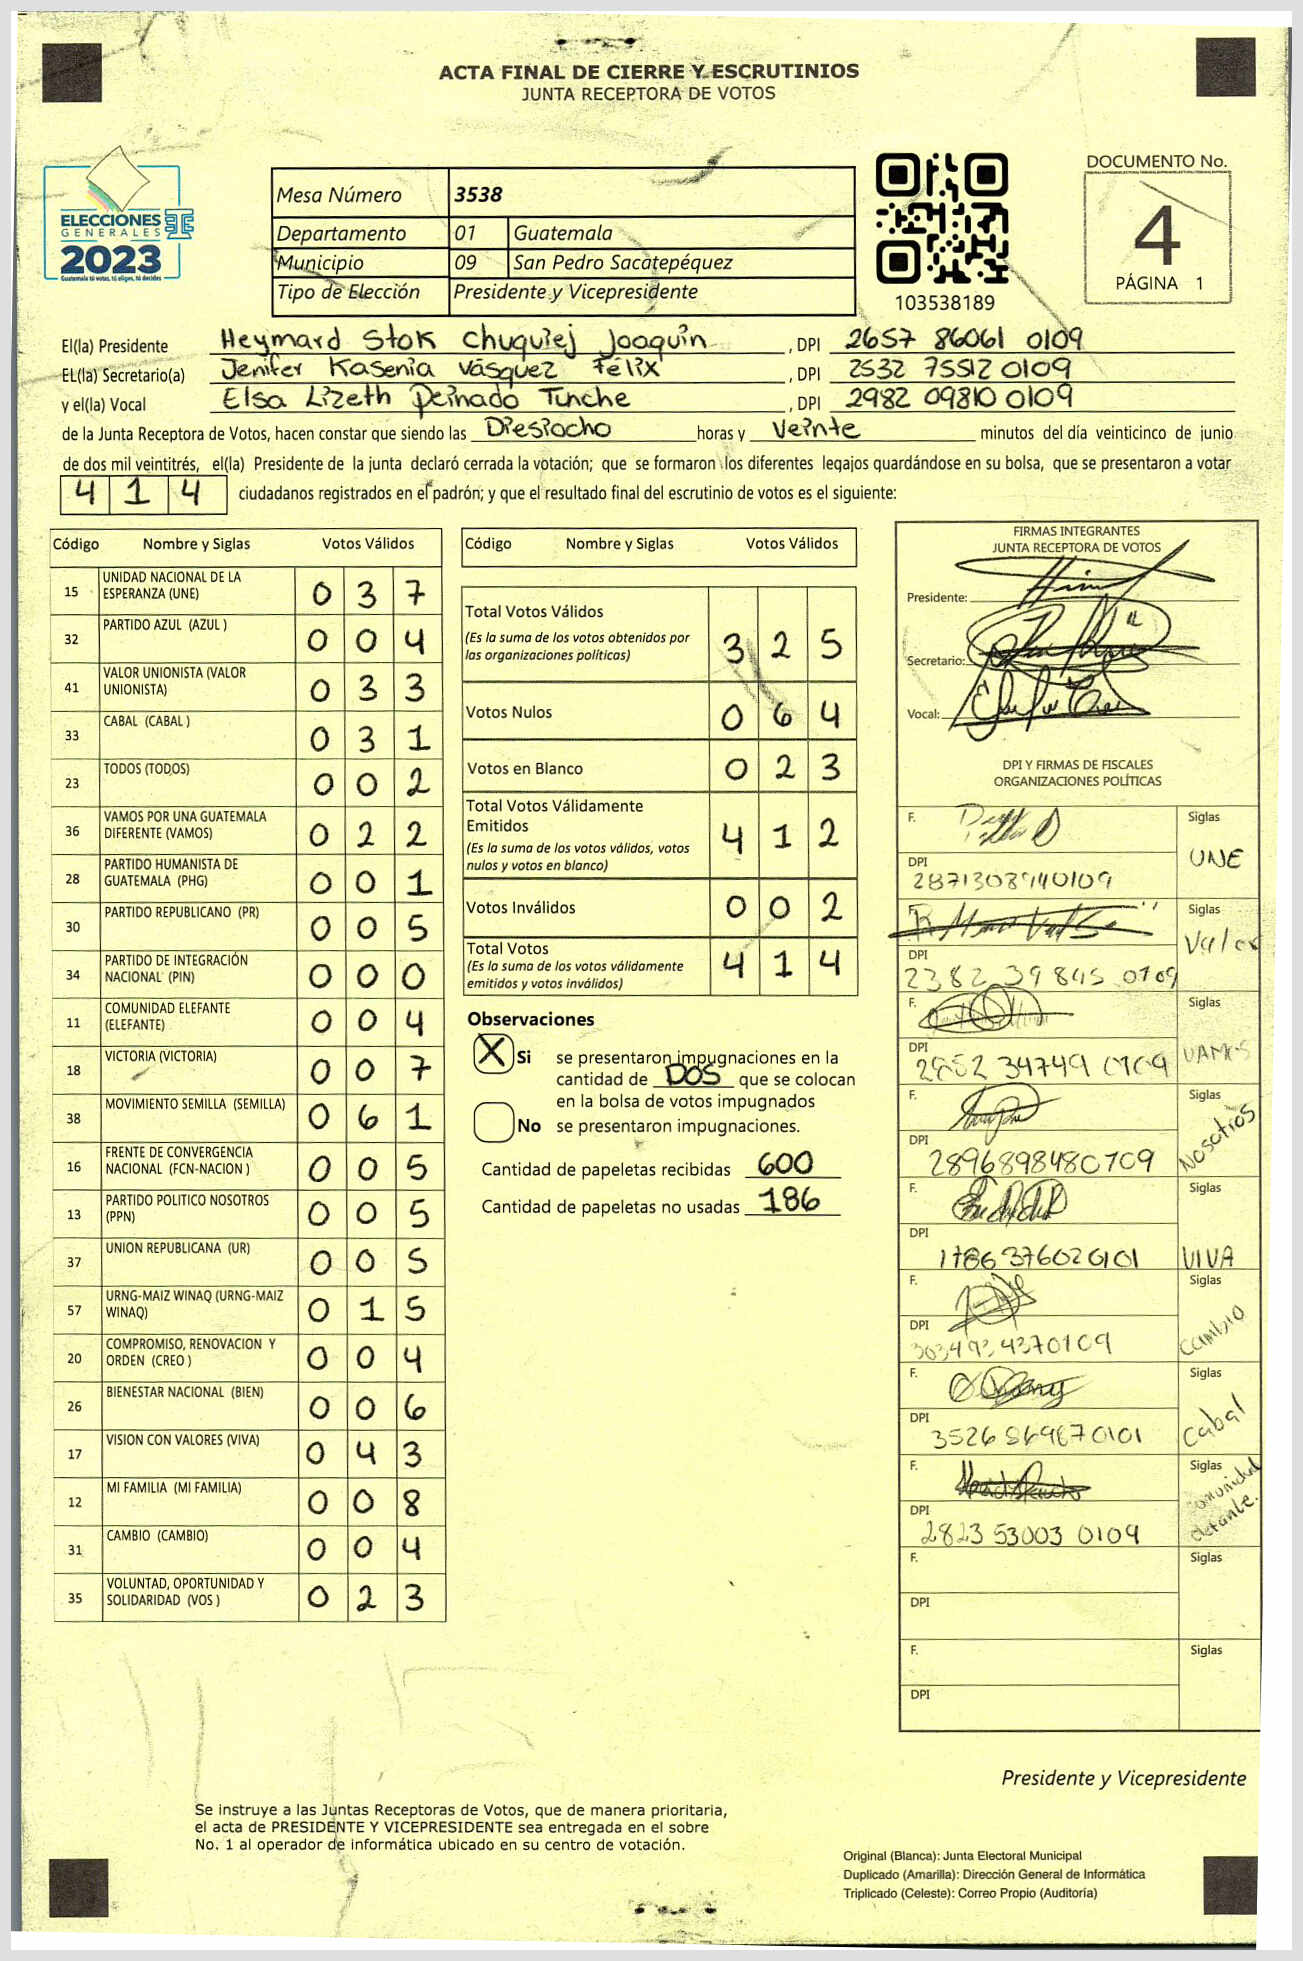 ACTA FINAL DE CIERRE Y ESCRUTINIOS
JUNTA RECEPTORA DE VOTOS
ELECCIONES
GENERALES
2023
Guatemala tú votas, tú eliges, tú decides
Mesa Número 3538
Departamento 01 Guatemala
Municipio 09 San Pedro Sacatepéquez
Tipo de Elección Presidente y Vicepresidente
103538189
DOCUMENTO No.
4
PÁGINA 1
El(la) Presidente Heymard Stok Chuquiej Joaquin, DPI 2657 86061 0109
EL(la) Secretario(a) Jenifer Kasenia Vásquez Félix, DPI 2532 75512 0109
y el(la) Vocal Elsa Lizeth Peinado Tunche, DPI 2982 09810 0109
de la Junta Receptora de Votos, hacen constar que siendo las Diesiocho horas y Veinte minutos del día veinticinco de junio
de dos mil veintitrés, el(la) Presidente de la junta declaró cerrada la votación; que se formaron los diferentes legajos guardándose en su bolsa, que se presentaron a votar
414 ciudadanos registrados en el padrón; y que el resultado final del escrutinio de votos es el siguiente:
Código Nombre y Siglas Votos Válidos
15 UNIDAD NACIONAL DE LA ESPERANZA (UNE) 0 3 7
32 PARTIDO AZUL (AZUL ) 0 0 4
41 VALOR UNIONISTA (VALOR UNIONISTA) 0 3 3
33 CABAL (CABAL ) 0 3 1
23 TODOS (TODOS) 0 0 2
36 VAMOS POR UNA GUATEMALA DIFERENTE (VAMOS) 0 2 2
28 PARTIDO HUMANISTA DE GUATEMALA (PHG) 0 0 1
30 PARTIDO REPUBLICANO (PR) 0 0 5
34 PARTIDO DE INTEGRACIÓN NACIONAL (PIN) 0 0 0
11 COMUNIDAD ELEFANTE (ELEFANTE) 0 0 4
18 VICTORIA (VICTORIA) 0 0 7
38 MOVIMIENTO SEMILLA (SEMILLA) 0 6 1
16 FRENTE DE CONVERGENCIA NACIONAL (FCN-NACION ) 0 0 5
13 PARTIDO POLITICO NOSOTROS (PPN) 0 0 5
37 UNION REPUBLICANA (UR) 0 0 5
57 URNG-MAIZ WINAQ (URNG-MAIZ WINAQ) 0 1 5
20 COMPROMISO, RENOVACION Y ORDEN (CREO ) 0 0 4
26 BIENESTAR NACIONAL (BIEN) 0 0 6
17 VISION CON VALORES (VIVA) 0 4 3
12 MI FAMILIA (MI FAMILIA) 0 0 8
31 CAMBIO (CAMBIO) 0 0 4
35 VOLUNTAD, OPORTUNIDAD Y SOLIDARIDAD (VOS ) 0 2 3
Código Nombre y Siglas Votos Válidos
Total Votos Válidos 3 2 5
(Es la suma de los votos obtenidos por
las organizaciones políticas)
Votos Nulos 0 6 4
Votos en Blanco 0 2 3
Total Votos Válidamente
Emitidos 4 1 2
(Es la suma de los votos válidos, votos
nulos y votos en blanco)
Votos Inválidos 0 0 2
Total Votos 4 1 4
(Es la suma de los votos válidamente
emitidos y votos inválidos)
Observaciones
X Si se presentaron impugnaciones en la
cantidad de DOS que se colocan
en la bolsa de votos impugnados
No se presentaron impugnaciones.
Cantidad de papeletas recibidas 600
Cantidad de papeletas no usadas 186
FIRMAS INTEGRANTES
JUNTA RECEPTORA DE VOTOS
Presidente:
Secretario:
Vocal:
DPI Y FIRMAS DE FISCALES
ORGANIZACIONES POLÍTICAS
F. Siglas
UNE
DPI
F. Siglas
Valor
DPI
2382 39845 0109
F. Siglas
VAMOS
DPI
F. Siglas
Nosotros
DPI
F. Siglas
VIVA
DPI
F. Siglas
Cambio
DPI
F. Siglas
Cabal
DPI
F. Siglas
DPI
2823 53003 0109
F. Siglas
DPI
F. Siglas
DPI
Presidente y Vicepresidente
Se instruye a las Juntas Receptoras de Votos, que de manera prioritaria,
el acta de PRESIDENTE Y VICEPRESIDENTE sea entregada en el sobre
No. 1 al operador de informática ubicado en su centro de votación.
Original (Blanca): Junta Electoral Municipal
Duplicado (Amarilla): Dirección General de Informática
Triplicado (Celeste): Correo Propio (Auditoría)